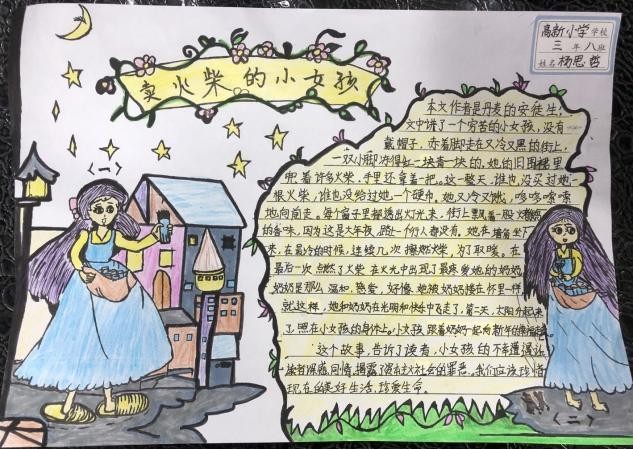 高新小学学校
三年八班
姓名 杨思哲
卖火柴的小女孩
本文作者是丹麦的安徒生,
文中讲了一个穷苦的小女孩,没有
戴帽子,赤着脚走在又冷又黑的街上,
一双小脚冻得红一块青一块的,她的旧围裙里
兜着许多火柴,手里还拿着一把。这一整天,谁也没买过她一
根火柴,谁也没给过她一个硬币,她又冷又饿,哆哆嗦嗦
地向前走。每个窗子里都透出灯光来,街上飘着一股
的香味,因为这是大年夜,她在墙角坐下
来,在最冷的时候,连续几次擦燃火柴,为了取暖。在
最后一次点燃了火柴,在火光中出现了最疼爱她的奶奶
奶奶是那么温和,慈爱,好像她被奶奶搂在怀里一样
就这样,她和奶奶在光明和快乐中飞走了,第二天,太阳升起来
了,照在小女孩的身体上。小女孩跟着奶奶一起向新年的
这个故事,告诉了读者,小女孩的不幸遭遇让
读者深感同情,揭露了资本主义社会的罪恶。我们应该珍惜
现在的美好生活,珍爱生命。
<一>
<二>